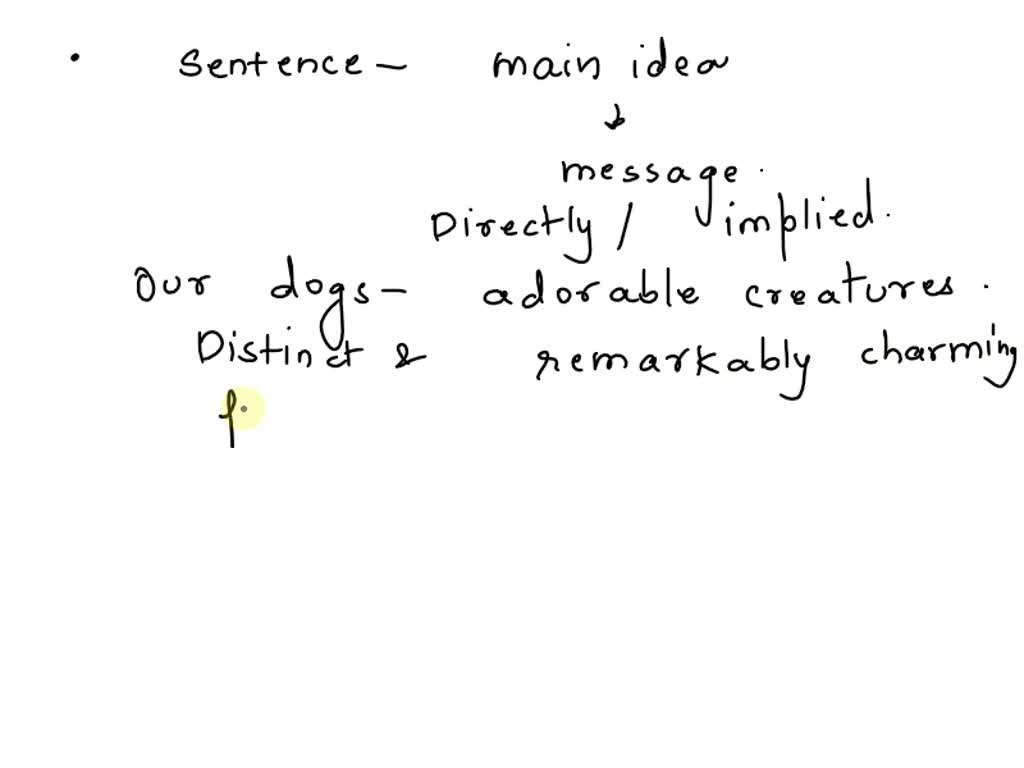 • Sentence – main idea
↓
message.
Directly / implied.
Our dogs – adorable creatures.
Distinct & remarkably charming